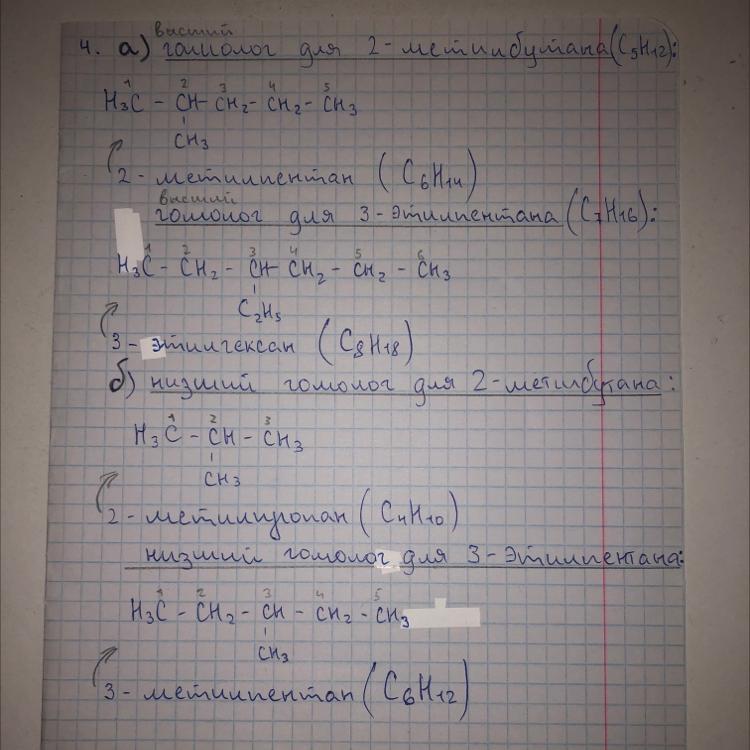 высший
4. а) гомолог для 2-метилбутана (C5H12):
1 2 3 4 5
H3C - CH - CH2 - CH2 - CH3
CH3
2-метилпентан (C6H14)
высший
гомолог для 3-этилпентана (C7H16):
1 2 3 4 5 6
H3C - CH2 - CH - CH2 - CH2 - CH3
C2H5
3-этилгексан (C8H18)
б) низший гомолог для 2-метилбутана:
1 2 3
H3C - CH - CH3
CH3
2-метилпропан (C4H10)
низший гомолог для 3-этилпентана:
1 2 3 4 5
H3C - CH2 - CH - CH2 - CH3
CH3
3-метилпентан (C6H12)